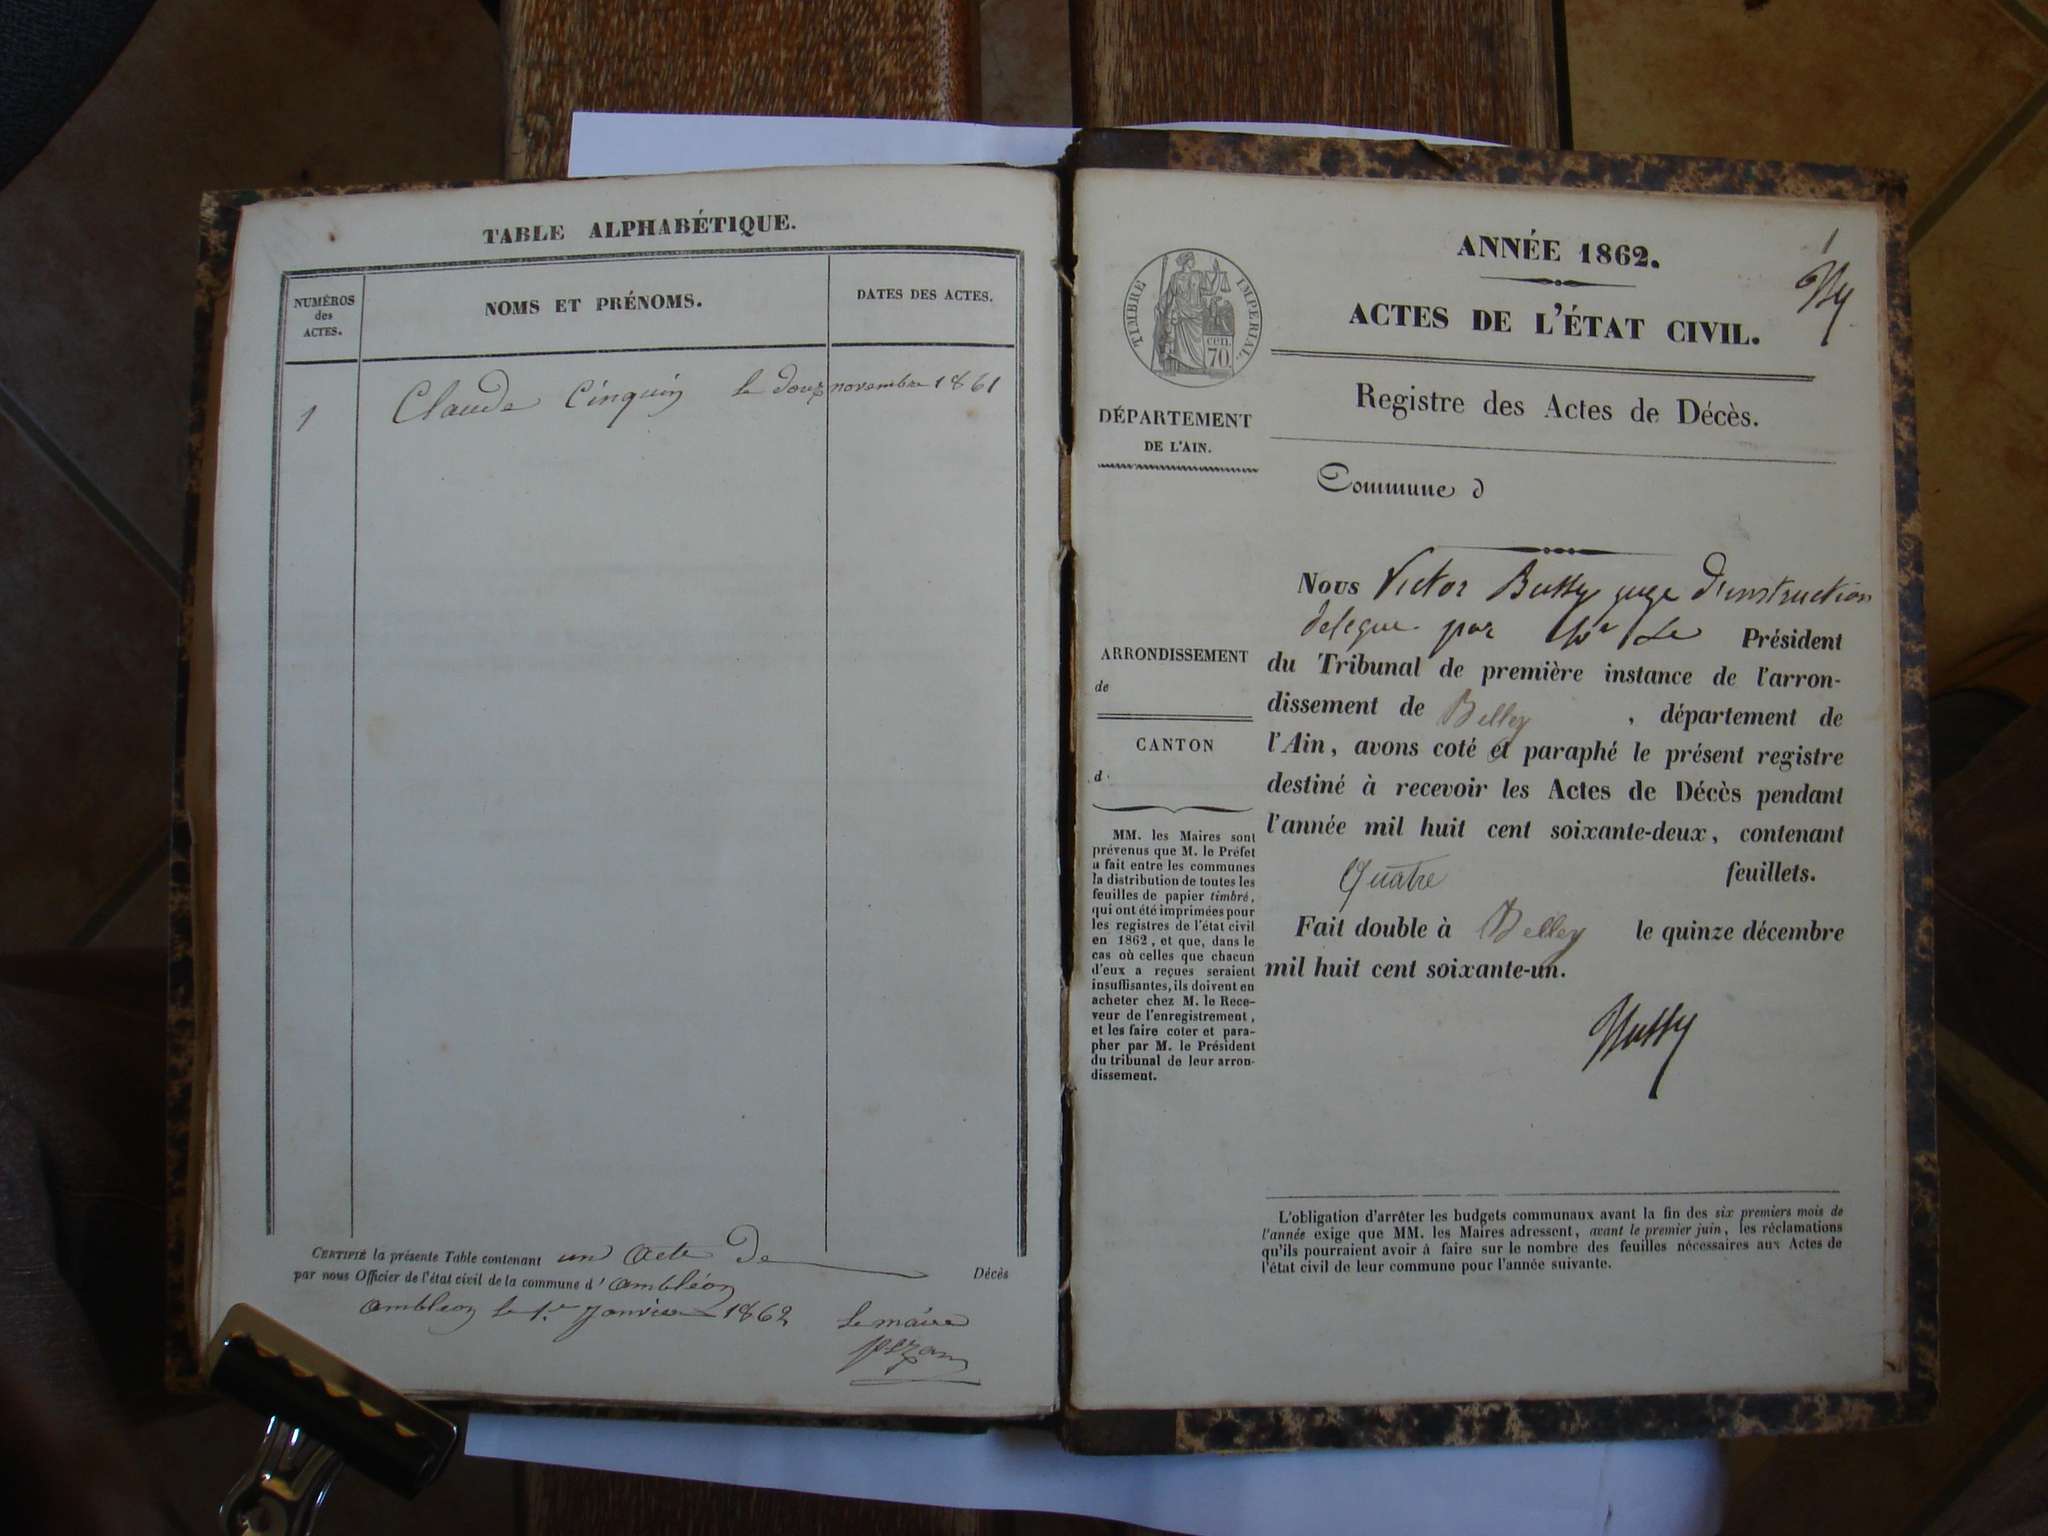 TABLE ALPHABÉTIQUE.
NUMÉROS
des
ACTES.
NOMS ET PRÉNOMS.
DATES DES ACTES.
1 Claude Cinquin le douze novembre 1861
CERTIFIÉ la présente Table contenant un acte de Décès
par nous Officier de l'état civil de la commune d' Ambléon
Ambléon le 1er Janvier 1862 le maire
ANNÉE 1862.
1
ACTES DE L'ÉTAT CIVIL.
TIMBRE IMPÉRIAL.
cen.
70
Registre des Actes de Décès.
DÉPARTEMENT
DE L'AIN.
Commune d
ARRONDISSEMENT
de
CANTON
d
MM. les Maires sont
prévenus que M. le Préfet
a fait entre les communes
la distribution de toutes les
feuilles de papier timbré,
qui ont été imprimées pour
les registres de l'état civil
en 1862, et que, dans le
cas où celles que chacun
d'eux a reçues seraient
insuffisantes, ils doivent en
acheter chez M. le Rece-
veur de l'enregistrement,
et les faire coter et para-
pher par M. le Président
du tribunal de leur arron-
dissement.
Nous Victor Bussy juge d'instruction
délégué par Mr Le Président
du Tribunal de première instance de l'arron-
dissement de Belley , département de
l'Ain, avons coté et paraphé le présent registre
destiné à recevoir les Actes de Décès pendant
l'année mil huit cent soixante-deux, contenant
Quatre feuillets.
Fait double à Belley le quinze décembre
mil huit cent soixante-un.
Bussy
L'obligation d'arrêter les budgets communaux avant la fin des six premiers mois de
l'année exige que MM. les Maires adressent, avant le premier juin, les réclamations
qu'ils pourraient avoir à faire sur le nombre des feuilles nécessaires aux Actes de
l'état civil de leur commune pour l'année suivante.